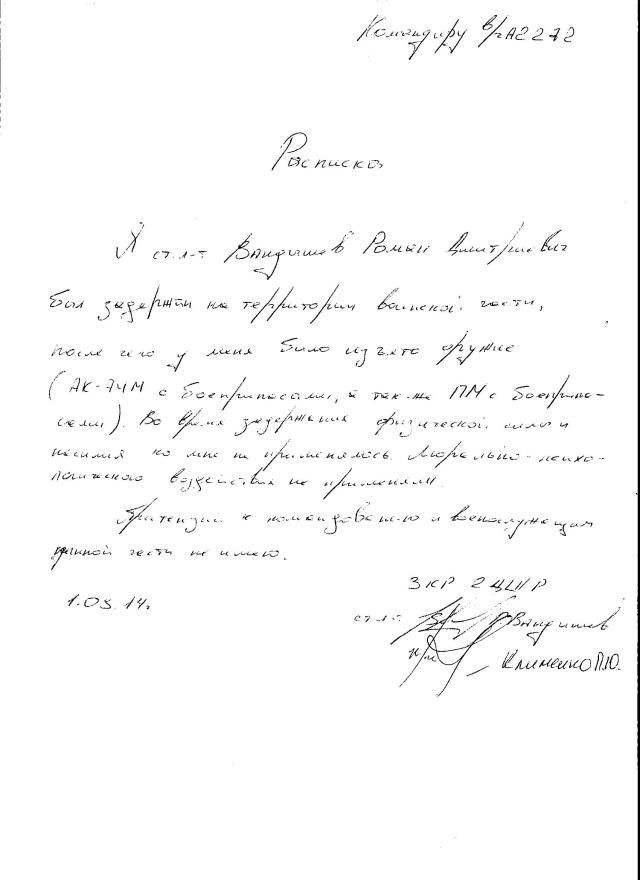 Командиру в/ч А2272
Расписка
Я ст. л-т Вандышев Роман Дмитриевич
был задержан на территории воинской части,
после чего у меня было изъято оружие
(АК-74М с боеприпасами, а так-же ПМ с боеприпа-
сами). Во время задержания физической силы и
насилия ко мне не применялось. Морально-психо-
логического воздействия не применяли.
Притензий к командованию и военнослужащим
данной части не имею.
ЗКР 2 ЦПР
1.03.14г.
ст. л-т Вандышев
Клименко П.Ю.